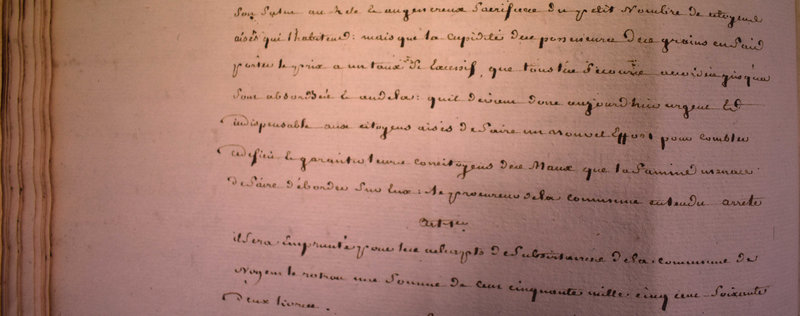 son salut au zele et aux genereux Sacrifices du petit Nombre de citoyens
aisés qui l'habitent: mais que la cupidité des possesseurs des grains en fait
porter le prix a un taux si Excessif, que tous les secours accordés jusqu'a
sont absorbés et audela: qu'il devient donc aujourd'hui urgent Et
indispensable aux citoyens aisés de faire un nouvel Effort pour combler
deficit et garantir leurs concitoyens des Maux que la famine menace
de faire déborder sur Eux; le procureur de la commune entendu arrete
Art. 1er
il sera Emprunté pour les achapts de Subsistances de la commune de
Nogent le rotrou une Somme de cent cinquante mille cinq cent soixante
deux livres.